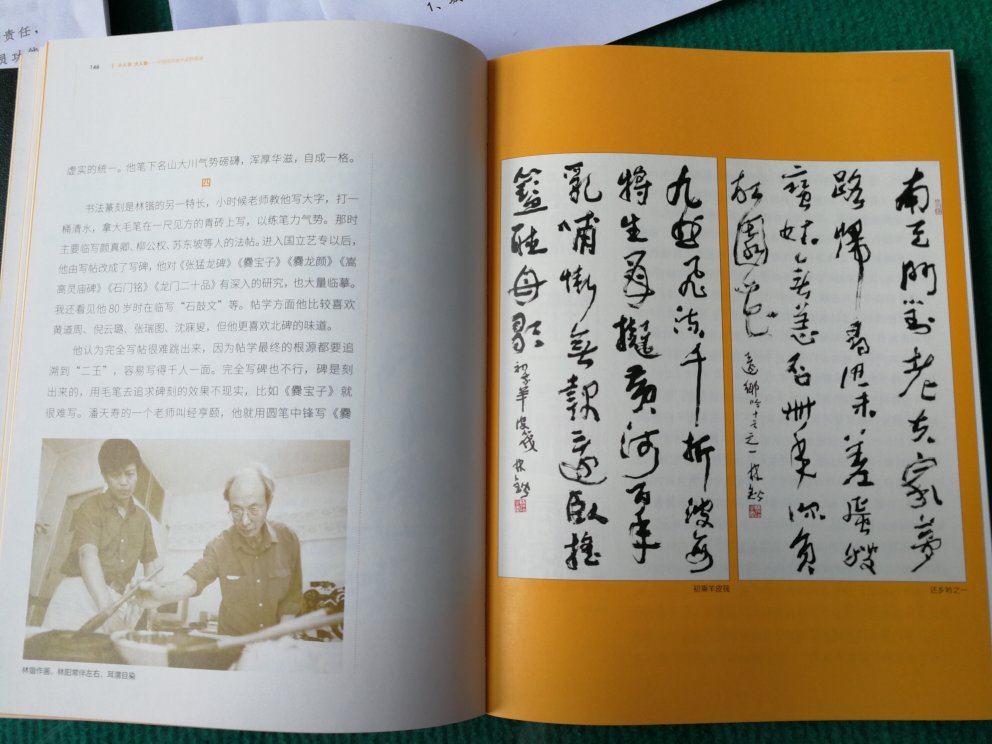 责任，
146
虚实的统一。他笔下名山大川气势磅礴，浑厚华滋，自成一格。
四
书法篆刻是林锴的另一特长，小时候老师教他写大字，打一
桶清水，拿大毛笔在一尺见方的青砖上写，以练笔力气势。那时
主要临写颜真卿、柳公权、苏东坡等人的法帖。进入国立艺专以后，
他由写帖改成了写碑，他对《张猛龙碑》《爨宝子》《爨龙颜》《嵩
高灵庙碑》《石门铭》《龙门二十品》有深入的研究，也大量临摹。
我还看见他80岁时在临写“石鼓文”等。帖学方面他比较喜欢
黄道周、倪云璐、张瑞图、沈寐叟，但他更喜欢北碑的味道。
他认为完全写帖很难跳出来，因为帖学最终的根源都要追
溯到“二王”，容易写得千人一面。完全写碑也不行，碑是刻
出来的，用毛笔去追求碑刻的效果不现实，比如《爨宝子》就
很难写。潘天寿的一个老师叫经亨颐，他就用圆笔中锋写《爨
林锴作画，林阳常伴左右，耳濡目染
南天門對老夫家夢
路歸尋思未差蛋艘
蠻姑無恙否卅年深負
園花
還鄉吟十之一 林鍇
九曲飛流千折波每
將生撻黃河百年
乳哺慚無報還臥搖
籃聽母歌
初乘羊皮筏 林鍇
初乘羊皮筏
还乡吟之一